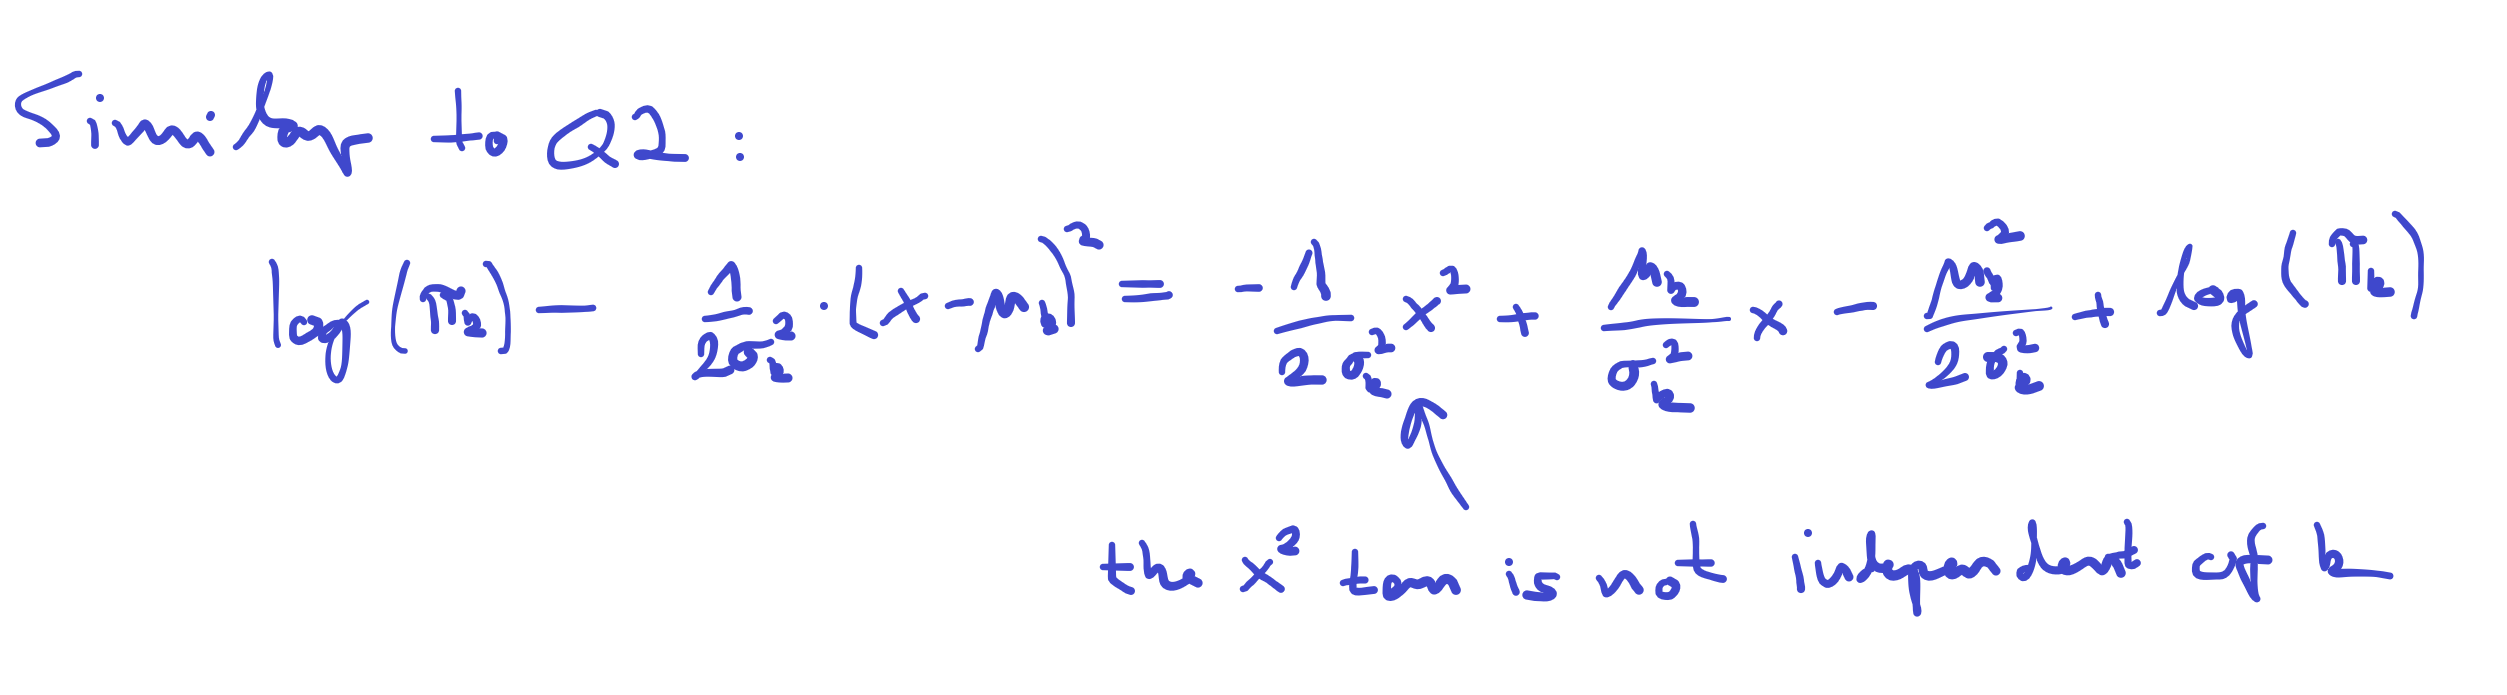 Similar to Q2:
log(π₂) - 1/2σ₂² · (x - μ₂)² = -1/2σ₂² x² + μ₂/σ₂² x - μ₂²/2σ₂² + log(π₂)
the x² term is not independent of k